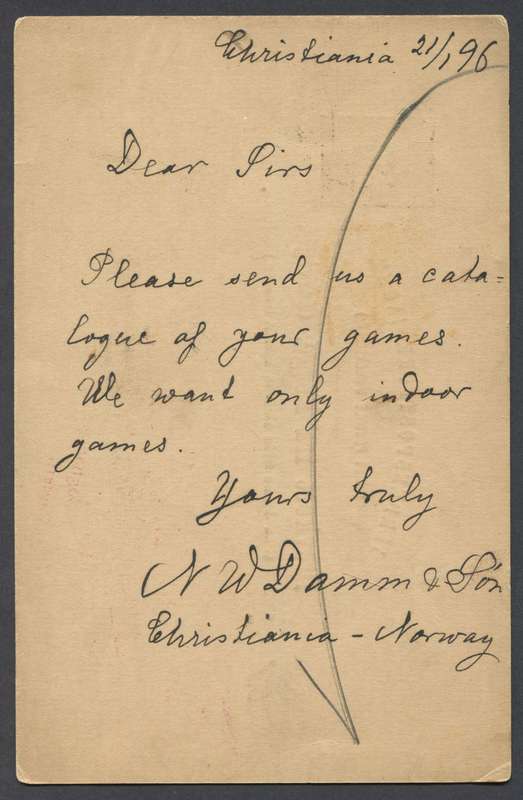 Christiania 21/1 96
Dear Sirs
Please send us a cata=
logue of your games.
We want only indoor
games.
Yours truly
N W Damm & Søn
Christiania - Norway